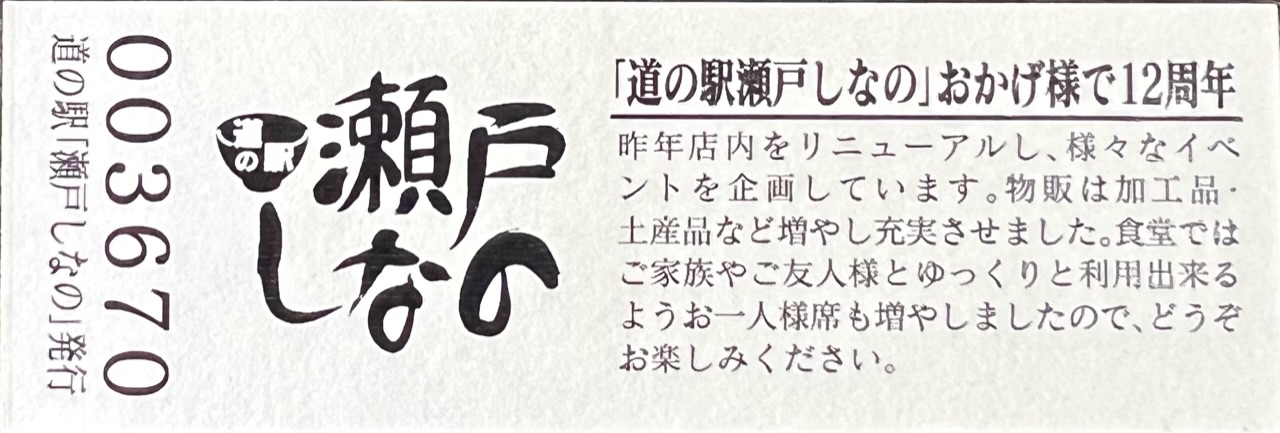 003670
道の駅「瀬戸しなの」発行
道の駅
瀬戸
しなの
「道の駅瀬戸しなの」おかげ様で12周年
昨年店内をリニューアルし、様々なイベ
ントを企画しています。物販は加工品・
土産品など増やし充実させました。食堂では
ご家族やご友人様とゆっくりと利用出来る
ようお一人様席も増やしましたので、どうぞ
お楽しみください。